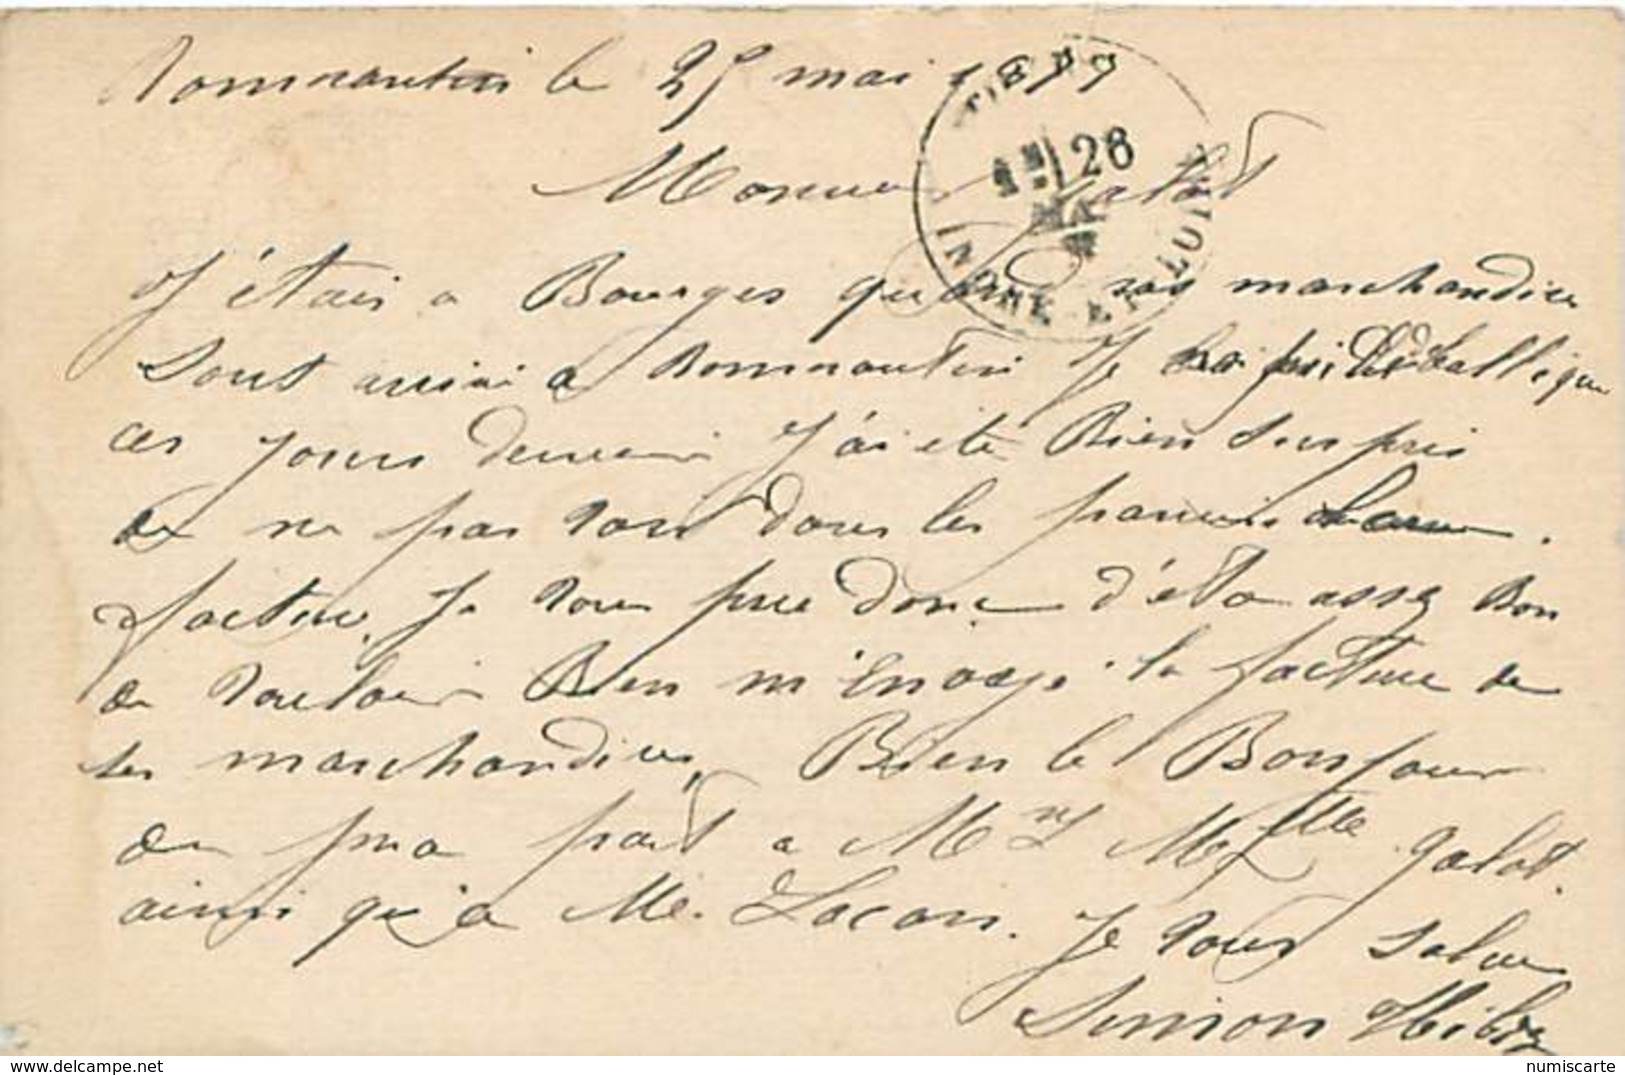 Rommrantin le 25 mai 1877
TOURS
1E 26 MAI
INDRE-ET-LOIRE
Monsieur Galot
J'étais a Bourges quand vos marchandises
sont arrivé a Rommrantin Je déballé que
ces jours dernier J'ai été Bien surpris
de ne pas voir dans les paniers
facture. Je vous prie donc d'être assez Bon
de vouloir Bien m'Envoyé la facture de
ses marchandises, Bien le Bonjour
de ma part a Mr et Mlle Galot.
ainsi qu'a Me. Lacan. Je vous salue
Simon
www.delcampe.net
numiscarte